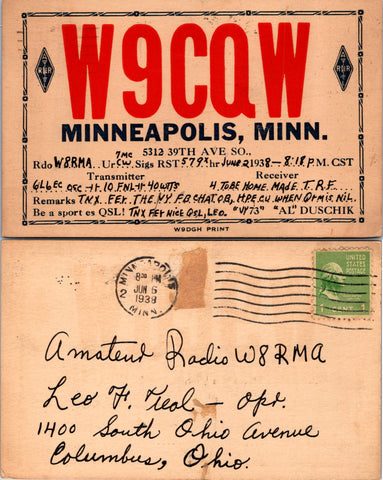 W9CQW
MINNEAPOLIS, MINN.
5312 39TH AVE SO.,
Rdo W8RMA.. Ur 7mc CW. Sigs RST 579x hr JUNE 2 1938 - 8:18 P.M. CST
Transmitter Receiver
6L6 EC OSC -It. 10. FNL-It. 40 WTTS 4 TUBE HOME. MADE. T.R.F.
Remarks TNX. FER. THE. VY F.B. CHAT OB, HPE. CU. WHEN QRM IS. NIL.
Be a sport es QSL! TNX FER NICE QSL, LEO. "VY73" "AL" DUSCHIK
W9DGH PRINT
MINNEAPOLIS
2
8 30 PM
JUN 6
1938
MINN.
UNITED
STATES
POSTAGE
1 CENT 1
Amateur Radio W8RMA
Leo F. Teal - opr.
1400 South Ohio Avenue
Columbus, Ohio.